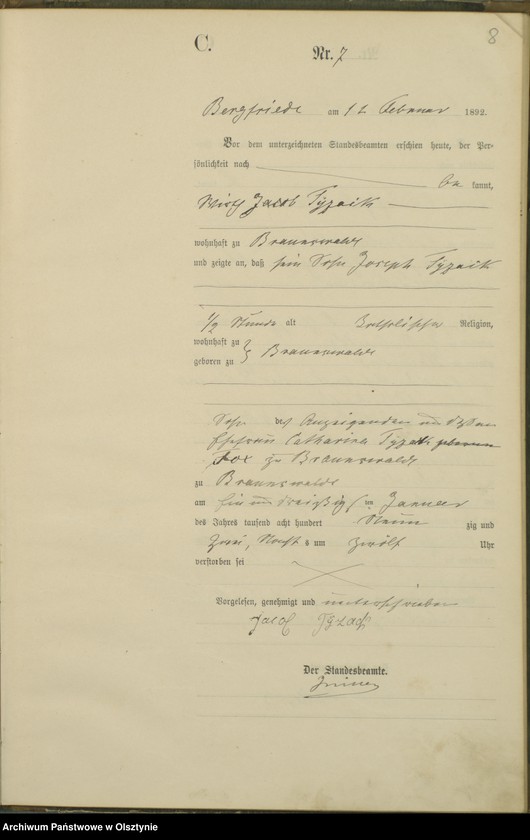 8
C.
Nr. 7
Bergfriede am 12 Februar 1892.
Vor dem unterzeichneten Standesbeamten erschien heute, der Per-
sönlichkeit nach
be kannt,
Jacob Tyzaik
wohnhaft zu Braunswalde
und zeigte an, daß sein Sohn Joseph Tyzaik
1/2 Stunde alt Katholischer Religion,
wohnhaft zu } Braunswalde
geboren zu
Sohn des Anzeigenden und dessen
Ehefrau Catharina geborenen
Fox zu Braunswalde
zu Braunswalde
am ein und dreißig sten Januar
des Jahres tausend acht hundert Neun zig und
zwei, Nachts um zwölf Uhr
verstorben sei
Vorgelesen, genehmigt und unterschrieben
Jacob
Der Standesbeamte.
Archiwum Państwowe w Olsztynie